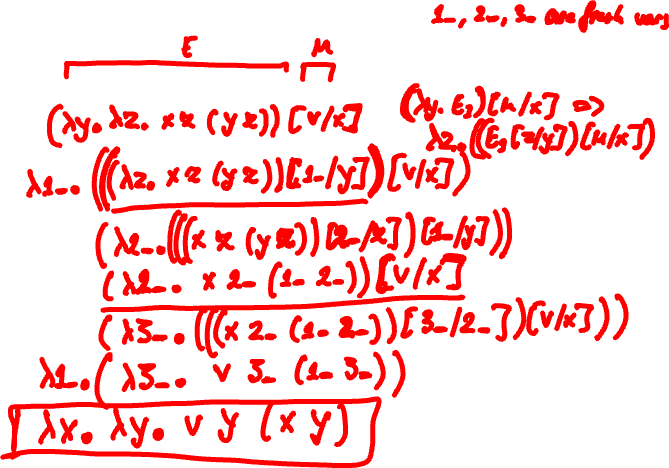 1_, 2_, 3_ are fresh vars
E M
(λy. λz. x z (y z)) [v/x]
(λy. E₁)[M/x] =>
λz. ((E₁[z/y])[M/x])
λ1_. (((λz. x z (y z))[1_/y])[v/x])
(λ2_. (((x z (y z))[2_/z])[1_/y]))
(λ2_. x 2_ (1_ 2_))[v/x]
(λ3_. (((x 2_ (1_ 2_))[3_/2_])[v/x]))
λ1_. (λ3_. v 3_ (1_ 3_))
λx. λy. v y (x y)